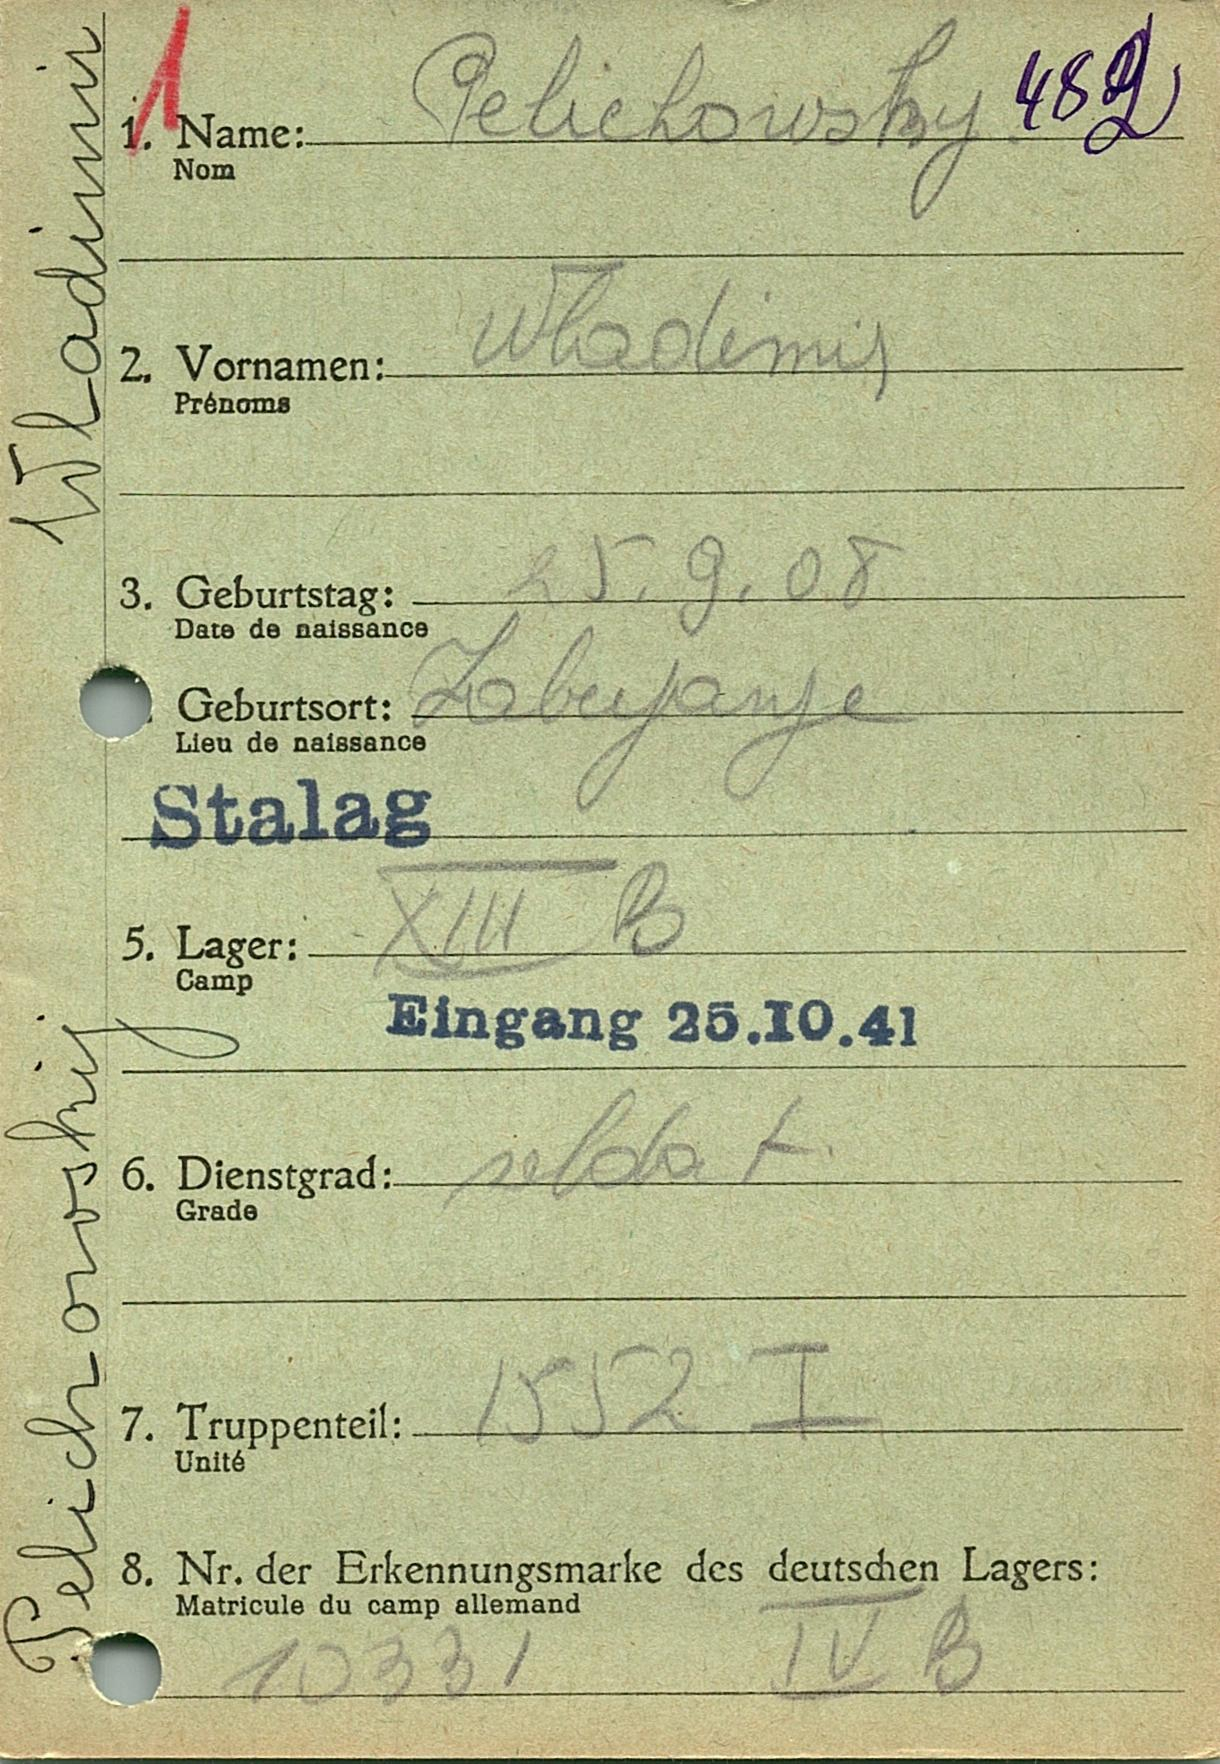 1
1. Name: Pelichowsky 482
Nom
2. Vornamen: Wladimir
Prénoms
3. Geburtstag: 25.9.08
Date de naissance
Geburtsort:
Lieu de naissance
Stalag
5. Lager: XIII B
Camp
Eingang 25.10.41
6. Dienstgrad: soldat.
Grade
7. Truppenteil: 1552 I
Unité
8. Nr. der Erkennungsmarke des deutschen Lagers:
Matricule du camp allemand
10331 IV B
Pelichovskij Wladimir